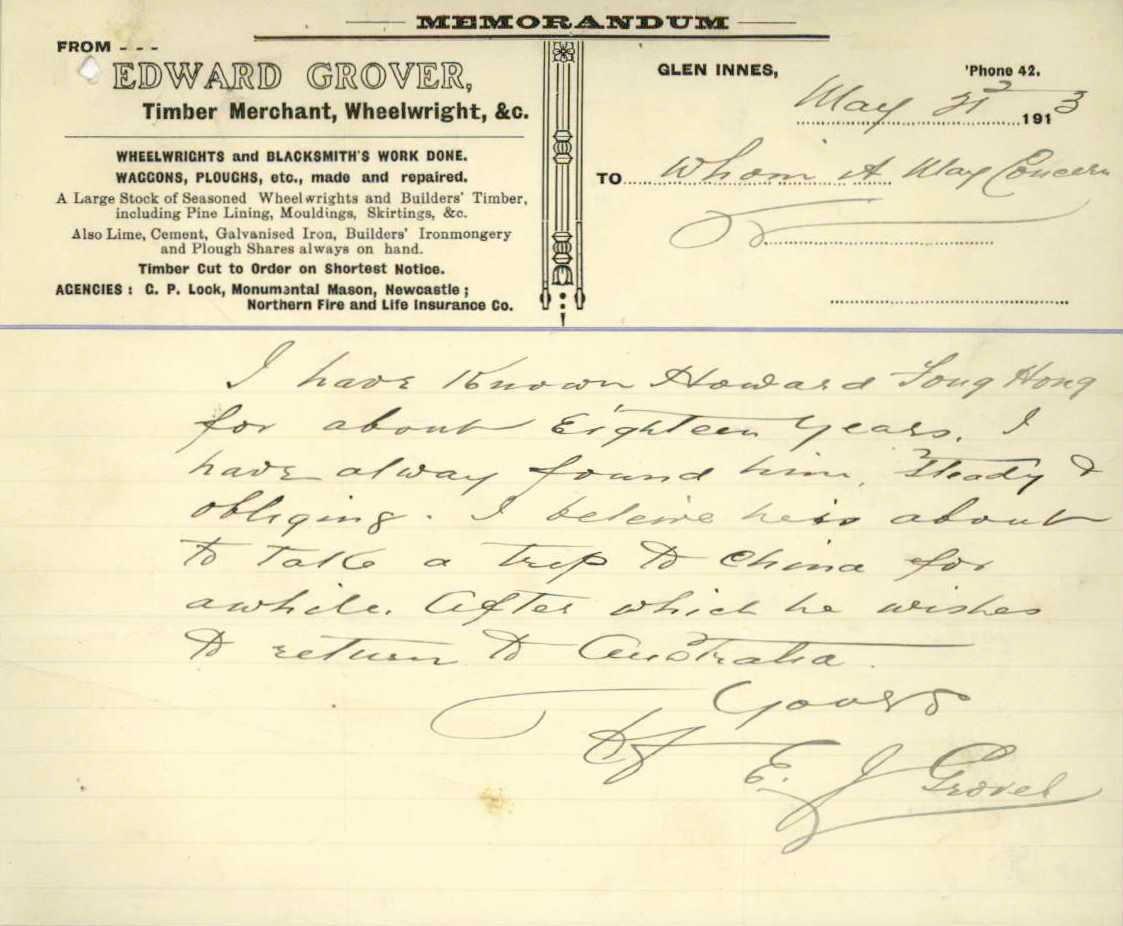 MEMORANDUM
FROM - - -
EDWARD GROVER,
Timber Merchant, Wheelwright, &c.
WHEELWRIGHTS and BLACKSMITH'S WORK DONE.
WAGGONS, PLOUGHS, etc., made and repaired.
A Large Stock of Seasoned Wheelwrights and Builders' Timber,
including Pine Lining, Mouldings, Skirtings, &c.
Also Lime, Cement, Galvanised Iron, Builders' Ironmongery
and Plough Shares always on hand.
Timber Cut to Order on Shortest Notice.
AGENCIES : C. P. Lock, Monumental Mason, Newcastle ;
Northern Fire and Life Insurance Co.
GLEN INNES,
'Phone 42.
May 21 1913
TO Whom it May Concern
I have Known Howard Hong
for about Eighteen Years. I
have alway found him, Steady &
obliging. I beleive he is about
to take a trip to China for
awhile. After which he wishes
to return to Australia.
Yours
E. J Grover